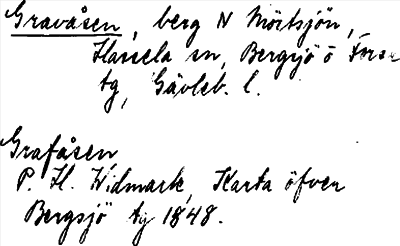 Gravåsen, berg N Mörtsjön,
Hassela sn, Bergsjö o Forsa
tg, Gävleb. l.
Grafåsen
P. H. Widmark, Karta öfver
Bergsjö tg 1848.